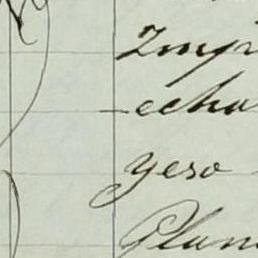 Zmpr
echa
yeso
Plan